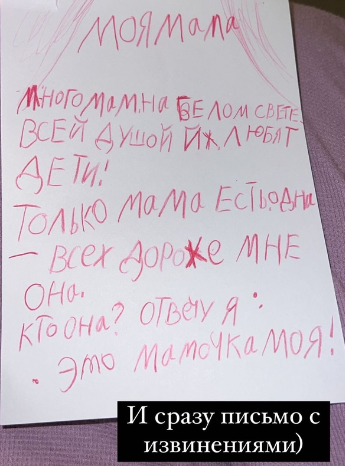 МОЯ МАМА
МНОГО МАМ НА БЕЛОМ СВЕТЕ
ВСЕЙ ДУШОЙ ИХ ЛЮБЯТ
ДЕТИ!
ТОЛЬКО МАМА ЕСТЬ ОДНА
– ВСЕХ ДОРОЖЕ МНЕ
ОНА.
КТО ОНА? ОТВЕЧУ Я:
. ЭТО МАМОЧКА МОЯ!
И сразу письмо с
извинениями)